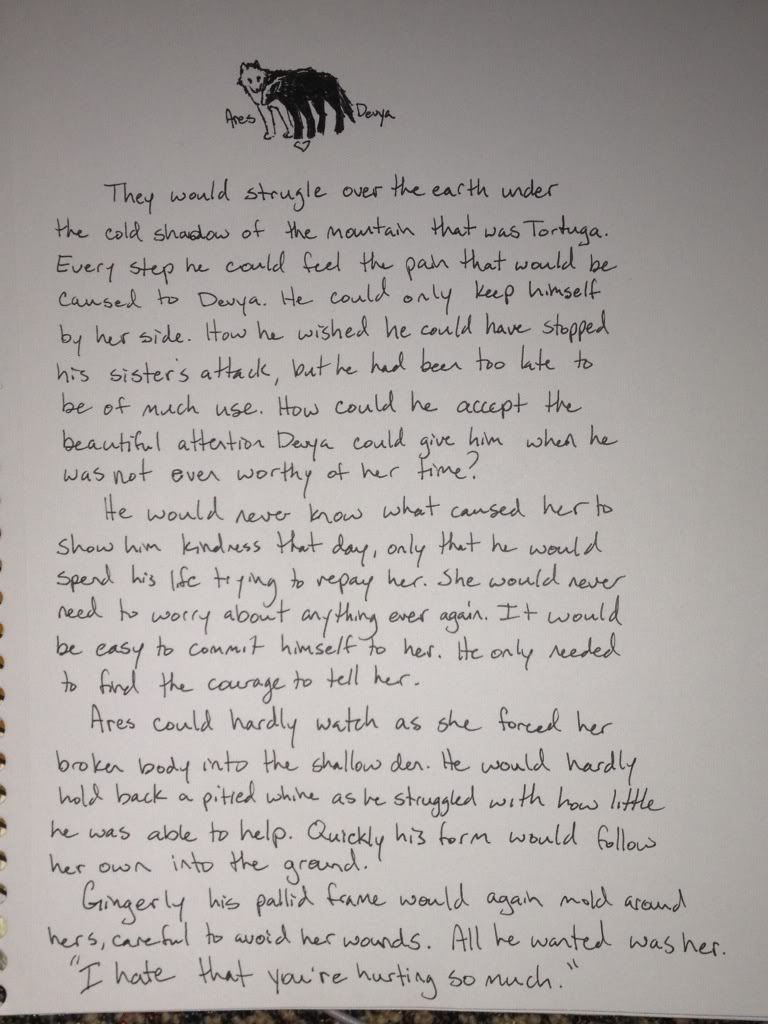 Ares
Devya
They would strugle over the earth under
the cold shadow of the mountain that was Tortuga.
Every step he could feel the pain that would be
caused to Devya. He could only keep himself
by her side. How he wished he could have stopped
his sister's attack, but he had been too late to
be of much use. How could he accept the
beautiful attention Devya could give him when he
was not even worthy of her time?
He would never know what caused her to
show him kindness that day, only that he would
spend his life trying to repay her. She would never
need to worry about anything ever again. It would
be easy to commit himself to her. He only needed
to find the courage to tell her.
Ares could hardly watch as she forced her
broken body into the shallow den. He would hardly
hold back a pitied whine as he struggled with how little
he was able to help. Quickly his form would follow
her own into the ground.
Gingerly his pallid frame would again mold around
hers, careful to avoid her wounds. All he wanted was her.
"I hate that you're hurting so much."